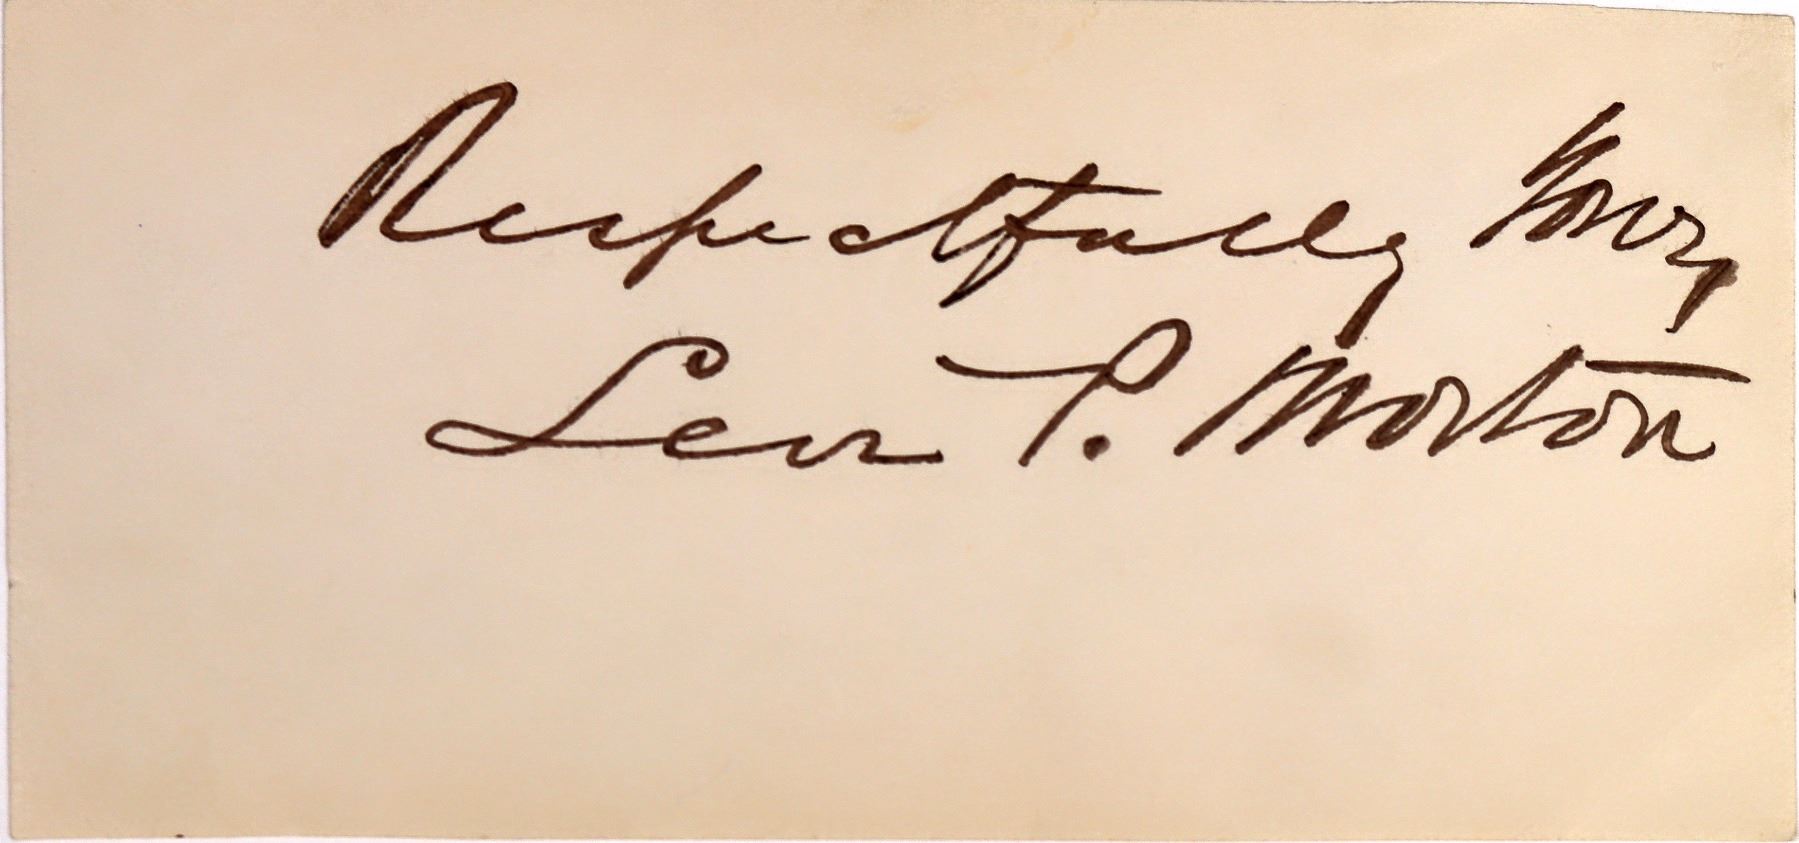 Respectfully Yours
Levi P. Morton